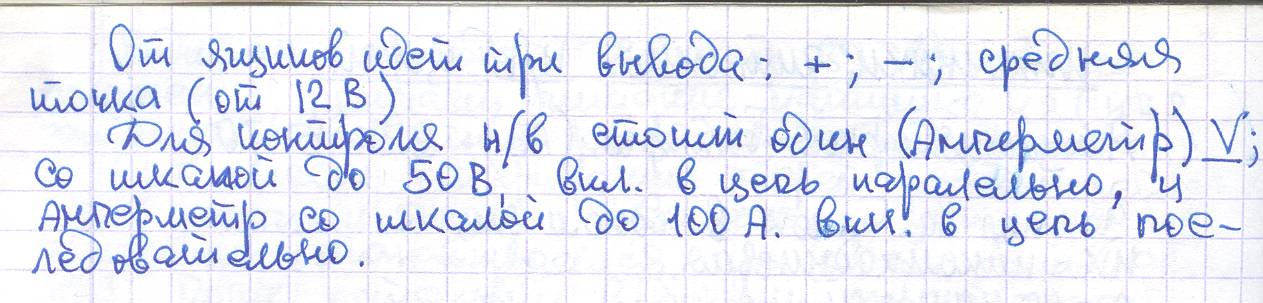 От ящиков идет три вывода: +; –; средняя
точка (от 12 В)
Для контроля н/в стоит один (Амперметр) V;
со шкалой до 50В вкл. в цепь паралельно, и
Амперметр со шкалой до 100 А. вкл. в цепь пос-
ледовательно.